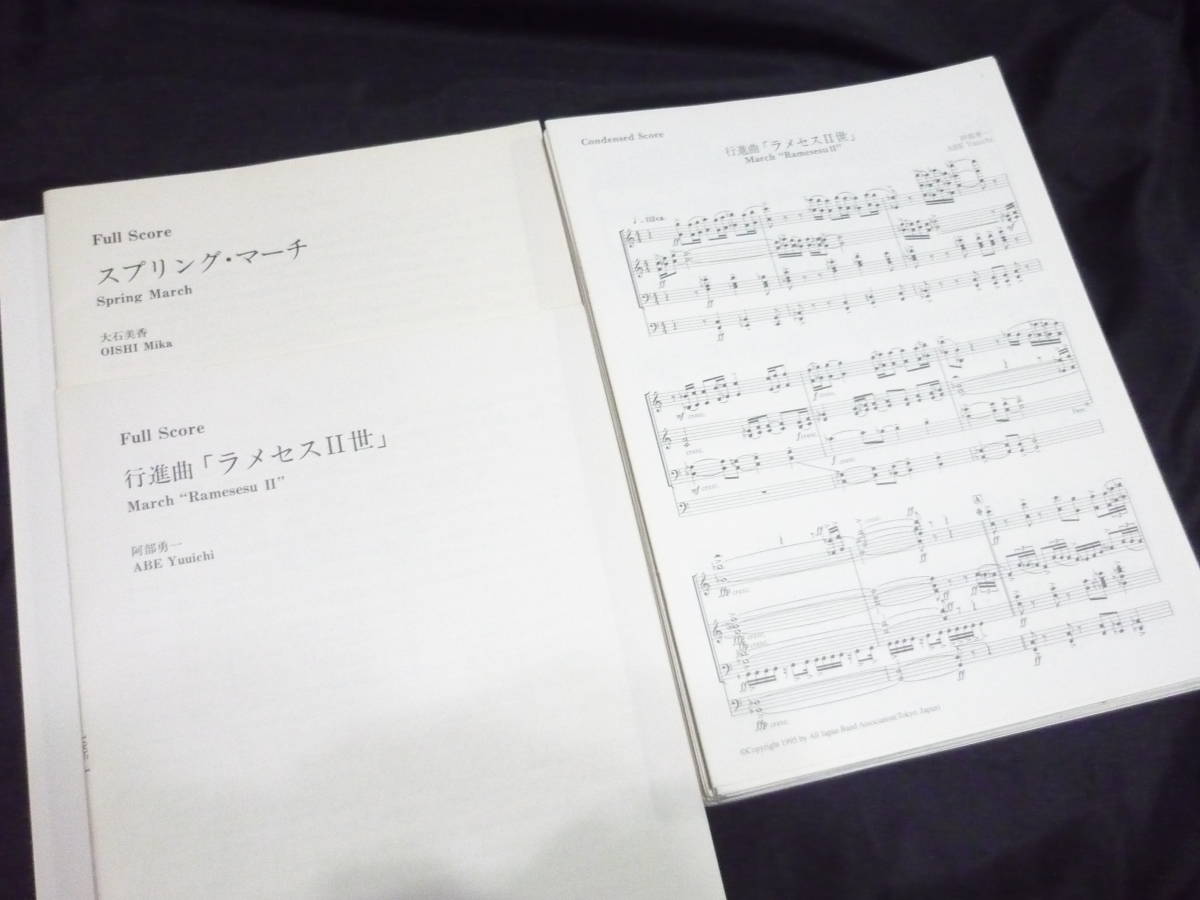 Full Score
スプリング・マーチ
Spring March
大石美香
OISHI Mika
Full Score
行進曲「ラメセスII世」
March “Ramesesu II”
阿部勇一
ABE Yuuichi
Condensed Score
行進曲「ラメセスII世」
March “Ramesesu II”
阿部勇一
ABE Yuuichi
ff
ff
ff
mf cresc.
f cresc.
cresc.
f cresc.
mf cresc.
f cresc.
A
ff
ff
cresc.
ffp cresc.
ff
ff
ff
ffp cresc.
©Copyright 1995 by All Japan Band Association(Tokyo Japan)